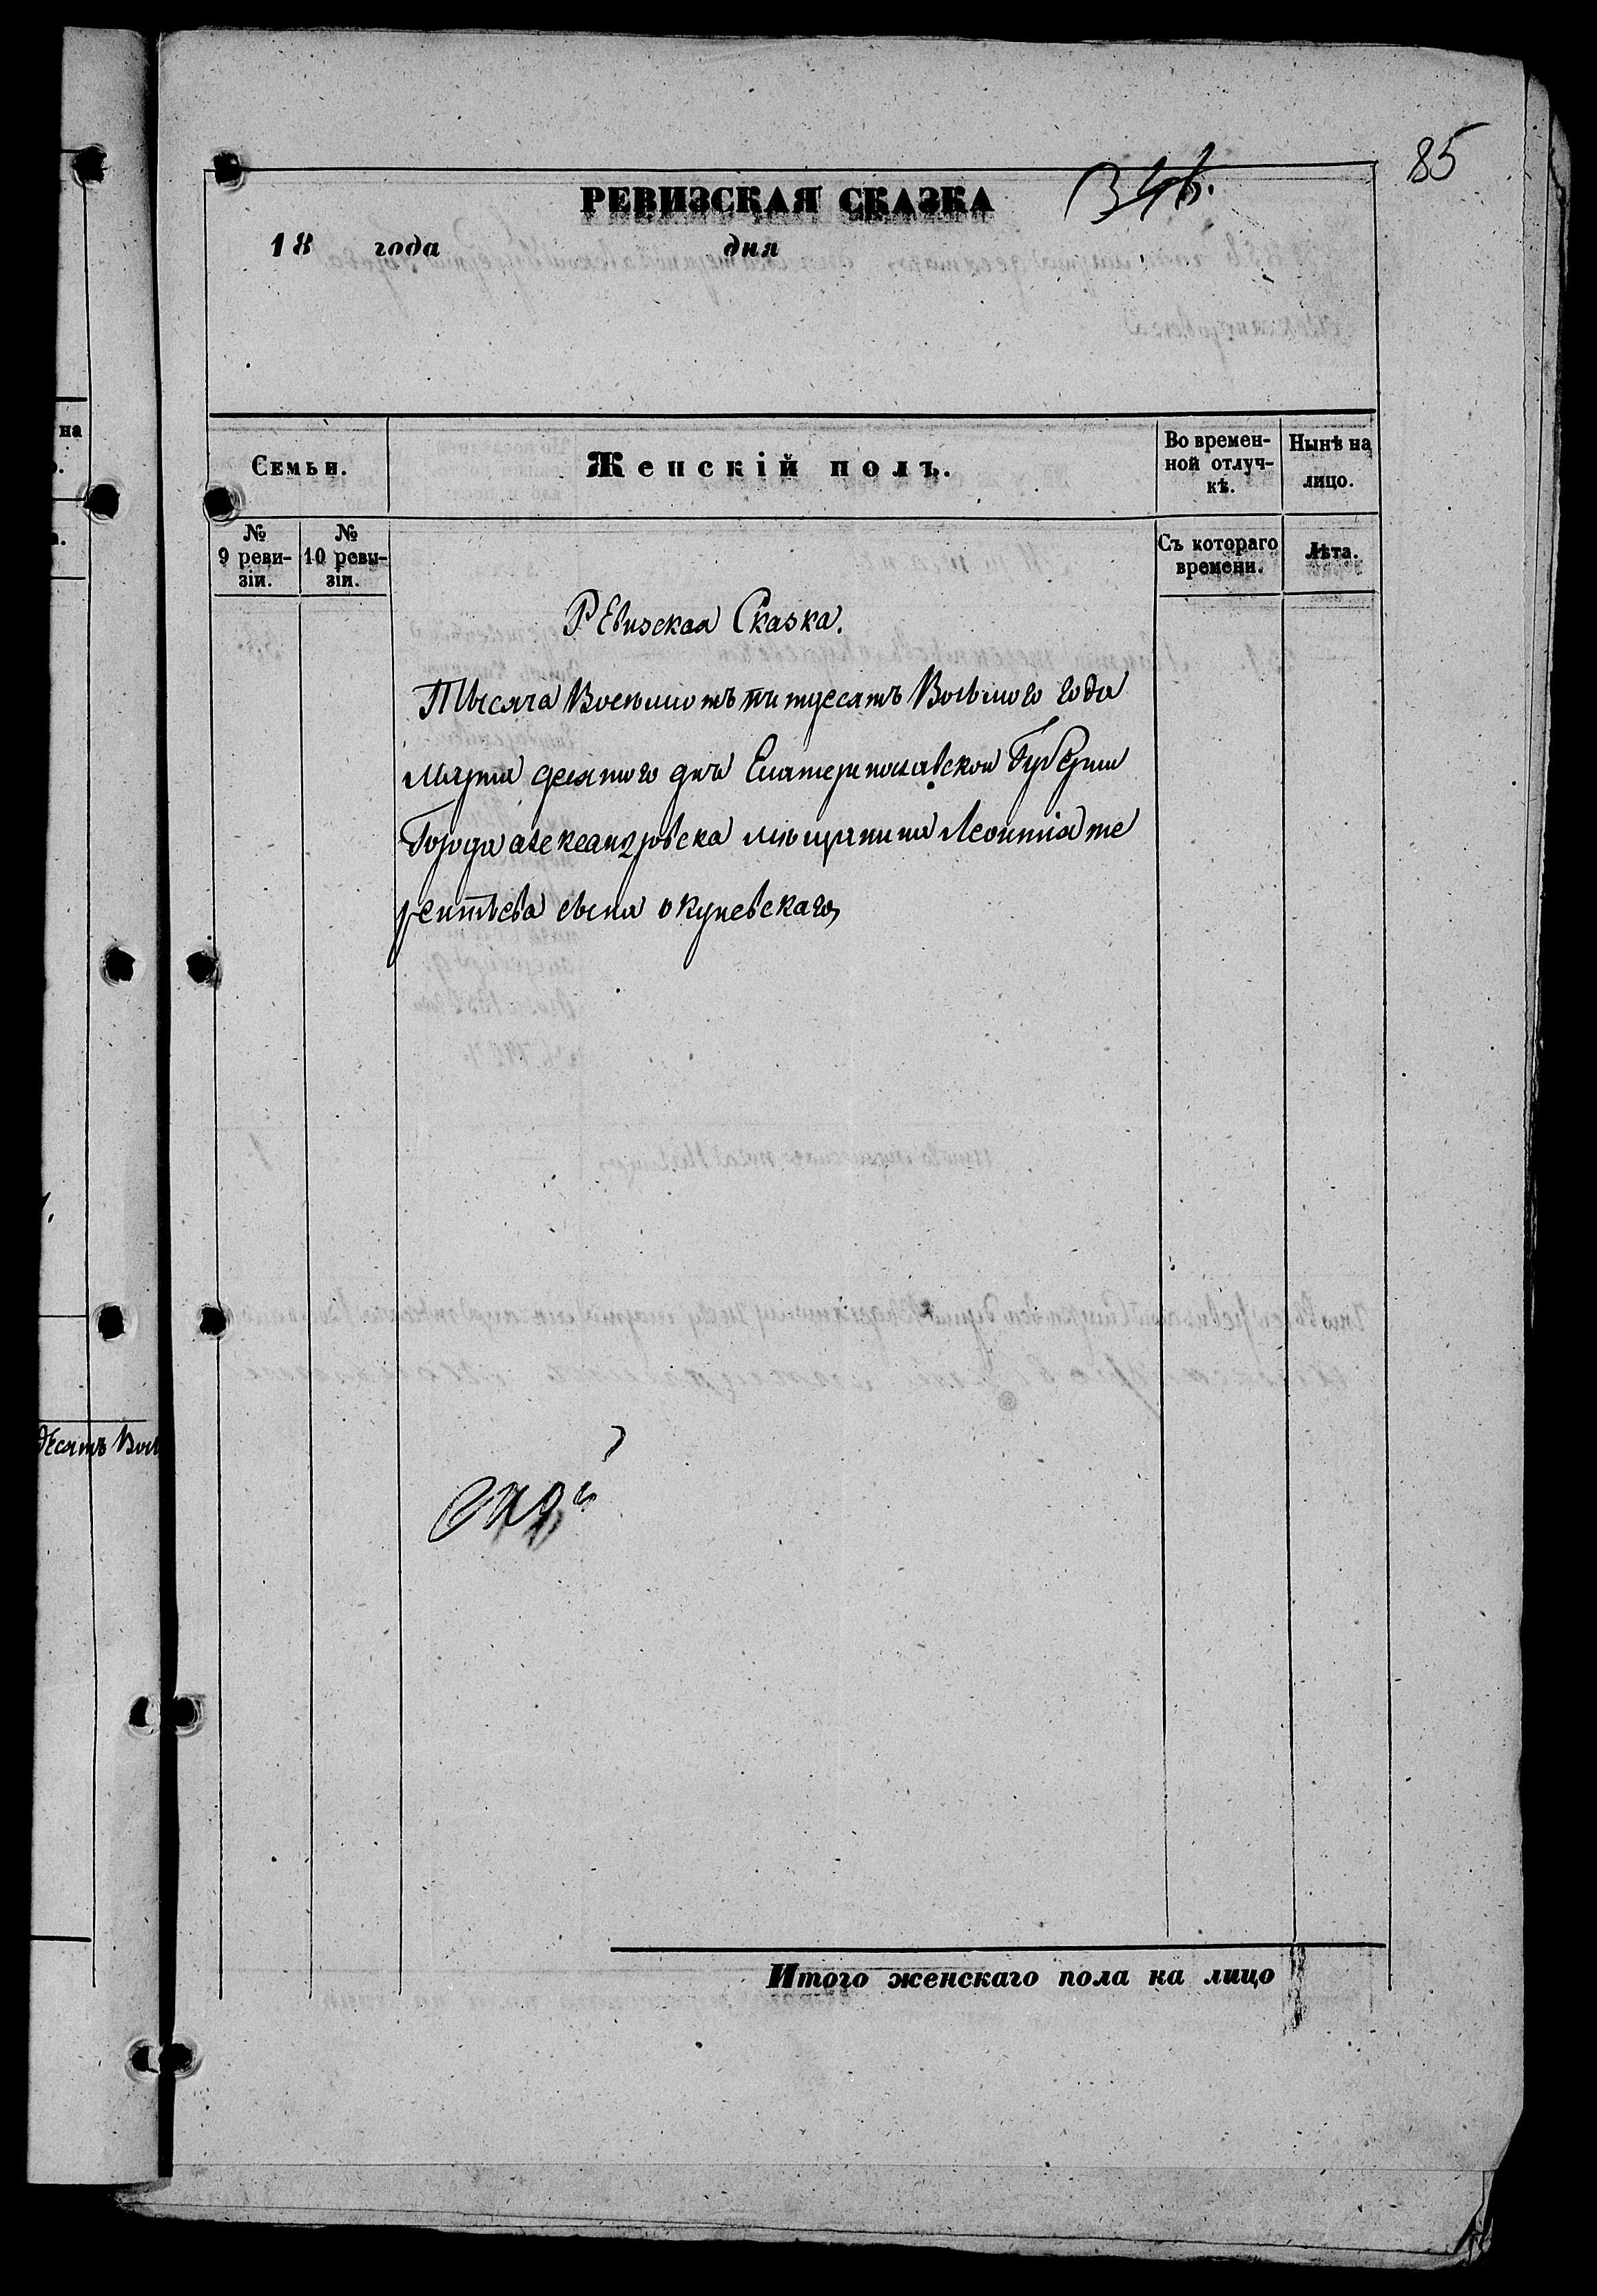 85
РЕВИЗСКАЯ СКАЗКА
18 года дня
Семьи.
Женскій полъ.
Во времен-
ной отлуч-
кѣ.
Нынѣ на
лицо.
№
9 реви-
зіи.
№
10 реви-
зіи.
Съ котораго
времени.
Лѣта.
Ревизская Сказка.
Тысяча Восемьсотъ пятдесятъ Восьмого года
Марта десятого дня Екатеринославской Губернии
Города александровска мещанина Леонтия те
рентьева сына окуневскаго
десятъ
Итого женскаго пола на лицо